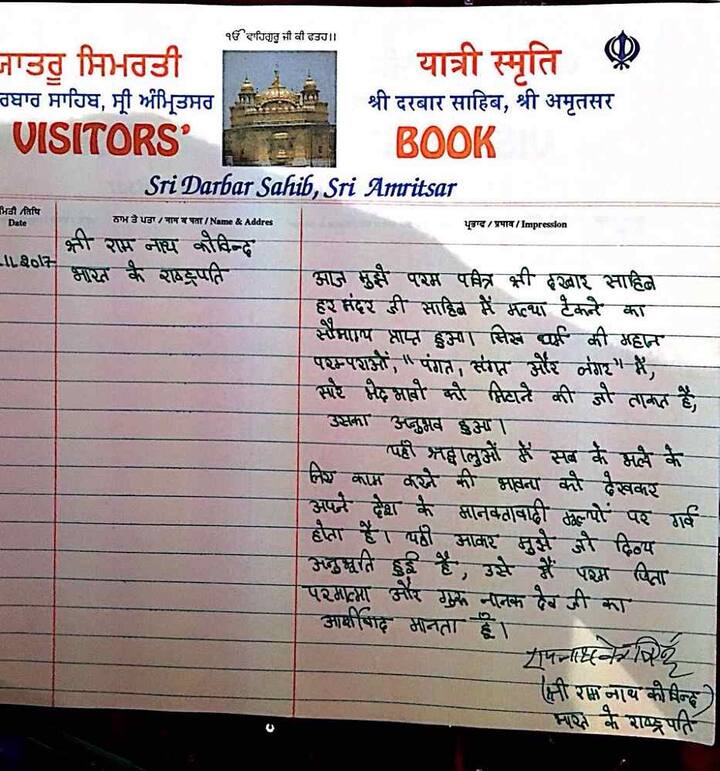 ੴ ਵਾਹਿਗੁਰੂ ਜੀ ਕੀ ਫਤਹ।।
ਜਾਤਰੂ ਸਿਮਰਤੀ
यात्री स्मृति
ਰਬਾਰ ਸਾਹਿਬ, ਸ੍ਰੀ ਅੰਮ੍ਰਿਤਸਰ
श्री दरबार साहिब, श्री अमृतसर
VISITORS'
BOOK
Sri Darbar Sahib, Sri Amritsar
ਮਿਤੀ /तिथि
Date
ਨਾਮ ਤੇ ਪਤਾ / नाम व पता / Name & Addres
ਪ੍ਰਭਾਵ / प्रभाव / Impression
.11.2017
श्री राम नाथ कोविन्द
भारत के राष्ट्रपति
आज मुझे परम पवित्र श्री दरबार साहिब
हरमंदर जी साहिब में मत्था टेकने का
सौभाग्य प्राप्त हुआ। सिख धर्म की महान
परम्पराओं, "पंगत, संगत और लंगर" में,
सारे भेदभावों को मिटाने की जो ताकत है,
उसका अनुभव हुआ।
यहाँ श्रद्धालुओं में सब के भले के
लिए काम करने की भावना को देखकर
अपने देश के मानवतावादी मूल्यों पर गर्व
होता है। यहाँ आकर मुझे जो दिव्य
अनुभूति हुई है, उसे मैं परम पिता
परमात्मा और गुरू नानक देव जी का
आर्शीवाद मानता हूँ।
(श्री राम नाथ कोविन्द)
भारत के राष्ट्रपति